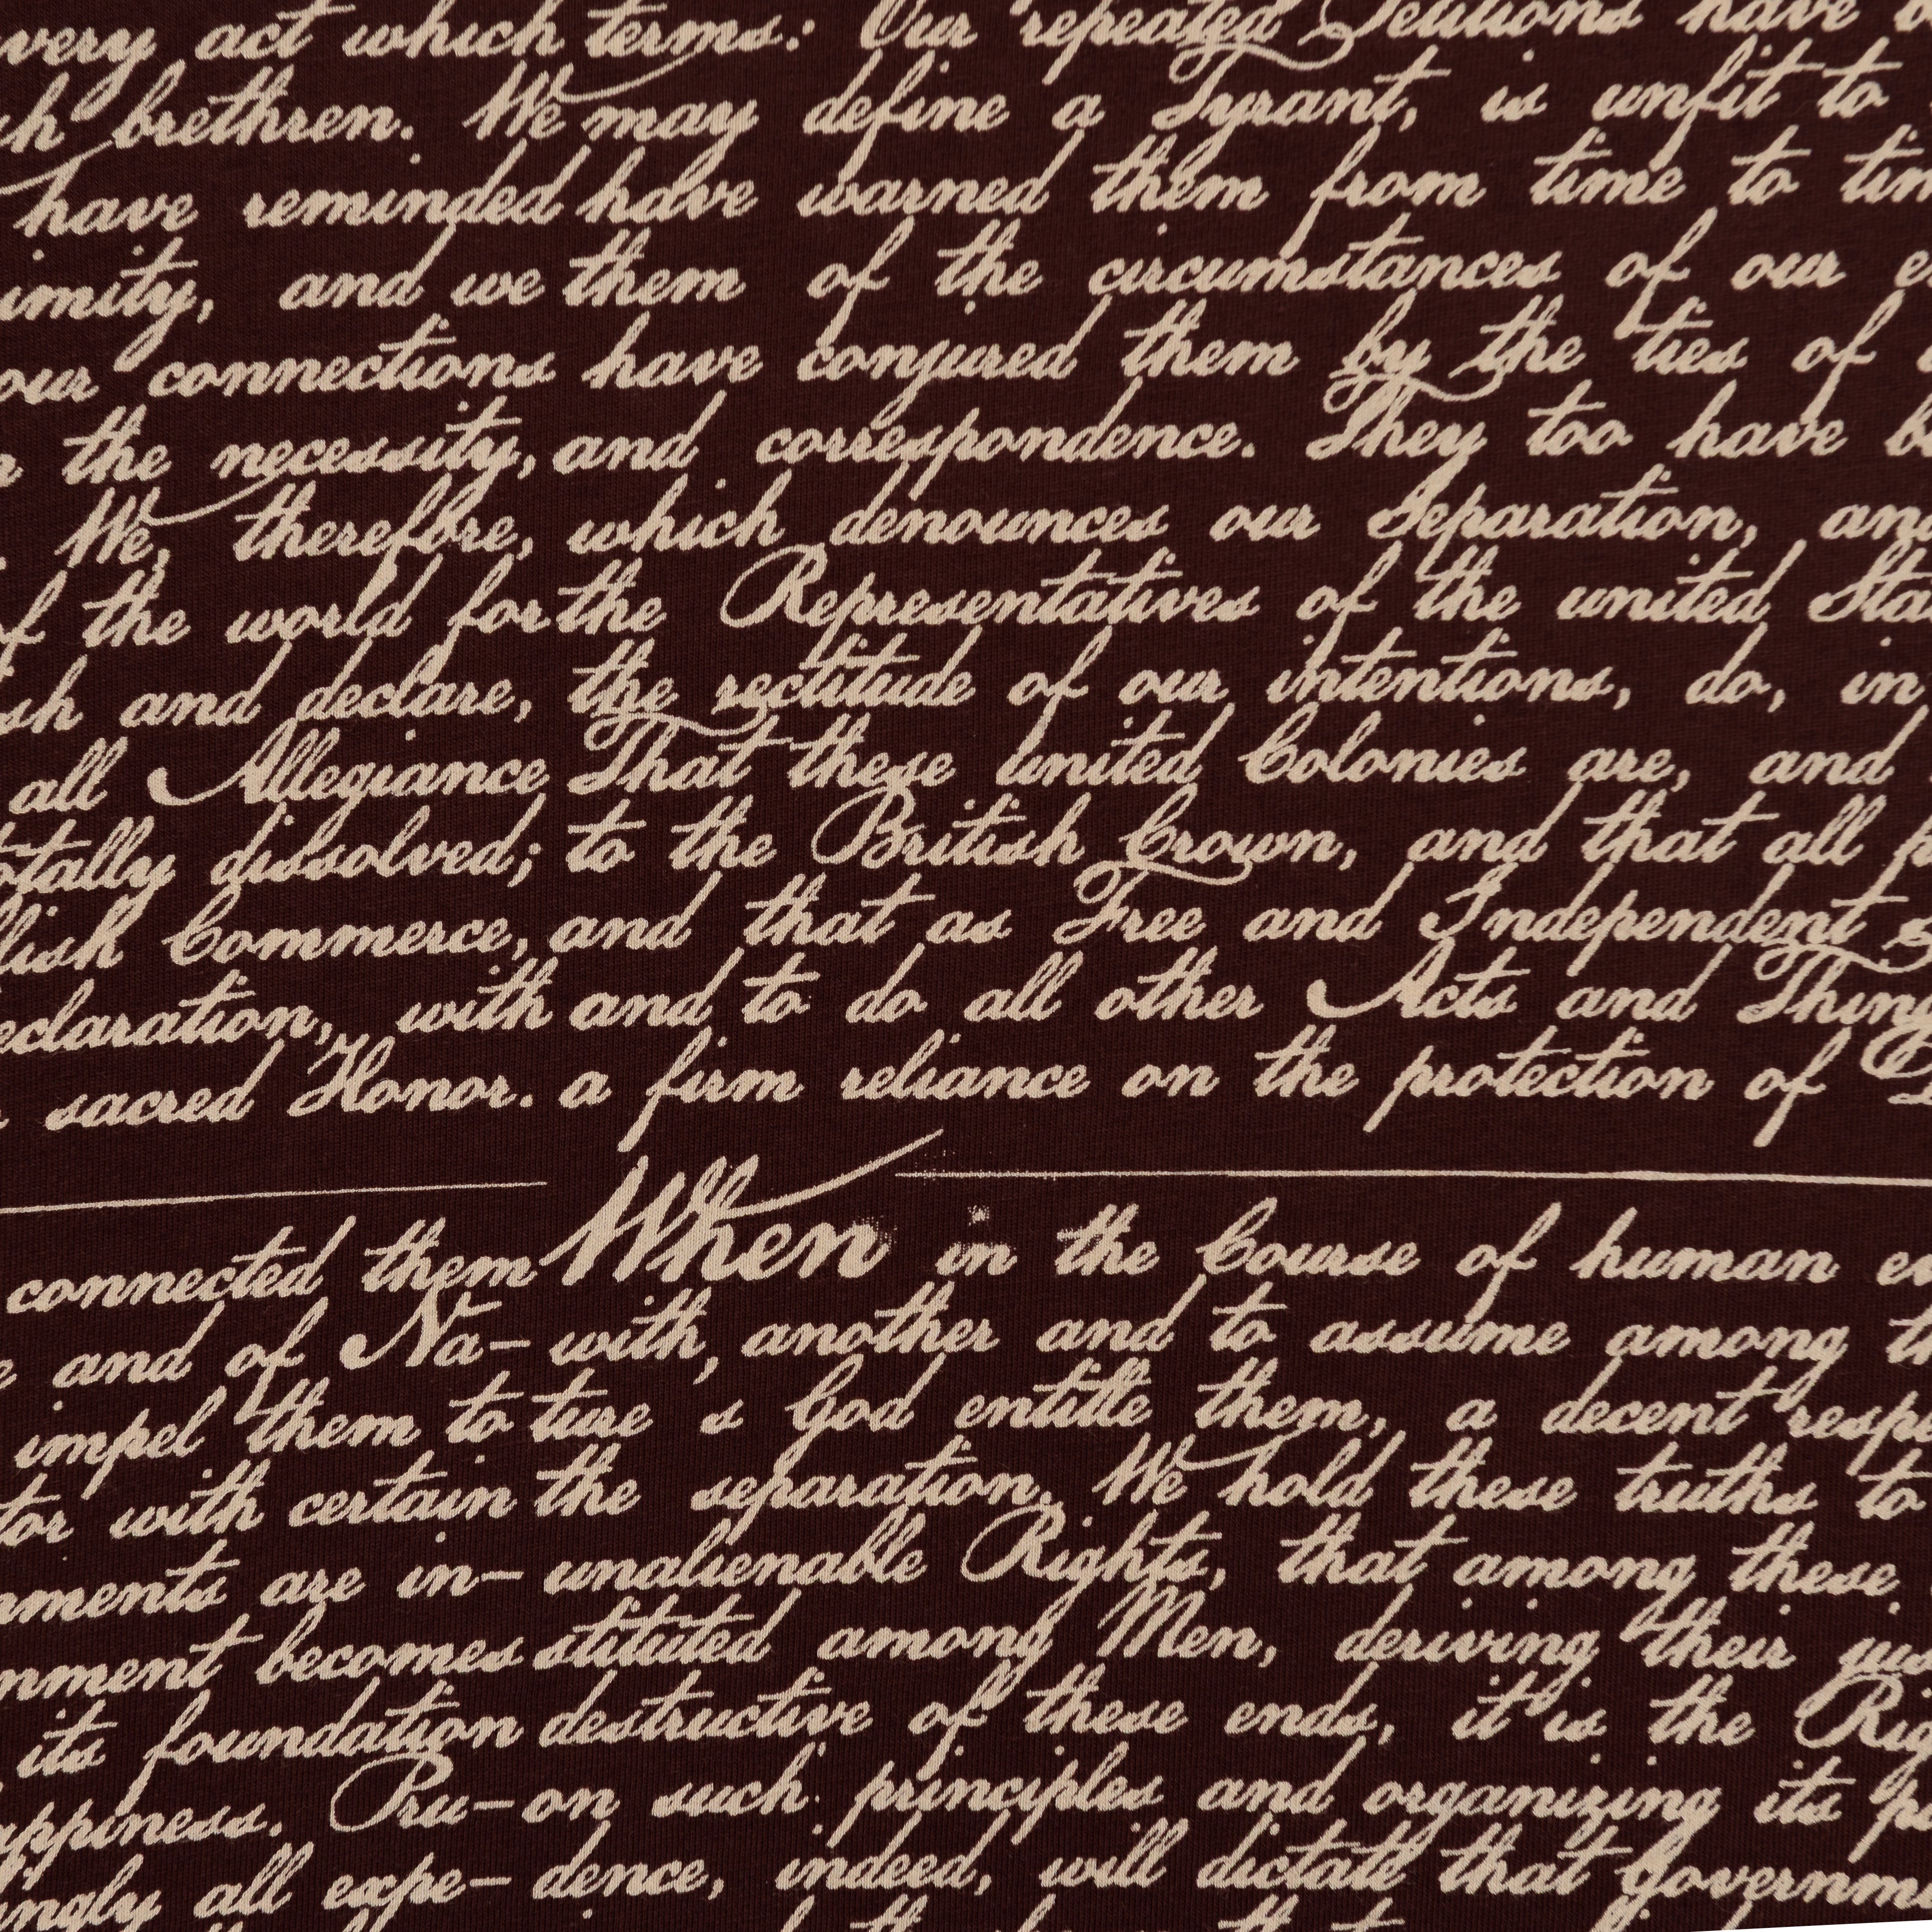 very act which terms: Our repeated Petitions have
brethren. We may define a Tyrant, is unfit to
have reminded have warned them from time to
and we them of the circumstances of our
our connections have conjured them by the ties of
the necessity, and correspondence. They too have
We, therefore, which denounces our Separation,
of the world for the Representatives of the united
and declare, the rectitude of our intentions, do, in
all Allegiance That these united Colonies are, and
dissolved; to the British Crown, and that all
Commerce, and that as Free and Independent
with and to do all other Acts and
sacred Honor. a firm reliance on the protection of
connected them When in the Course of human
and of Na- with, another and to assume among
impel them to ture s God entitle them, a decent
with certain the separation. We hold these truths to
are in- unalienable Rights, that among these
becomes stituted among Men, deriving their
its foundation destructive of these ends, it is the
Pru- on such principles and organizing its
all expe- dence, indeed, will dictate that